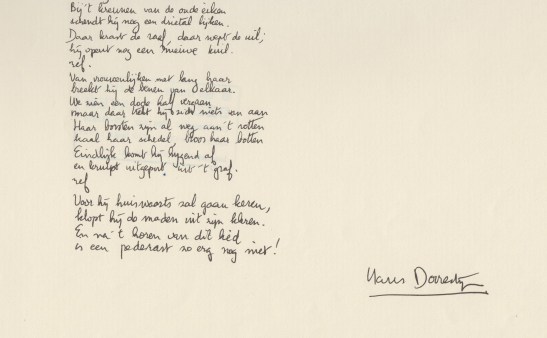 Bij 't kreunen van de oude eiken
schendt hij nog een drietal lijken.
Daar krast de raaf, daar roept de uil;
hij opent nog een nieuwe kuil.
ref.
Van vrouwenlijken met lang haar
breekt hij de benen van elkaar.
We zien een dode half vergaan
maar daar trekt hij zich niets van aan
Haar borsten zijn al weg aan 't rotten
kaal haar schedel, broos haar botten
Eindlijk komt hij hijgend af
en kruipt uitgeput uit 't graf.
ref
Voor hij huiswaarts zal gaan keren,
klopt hij de maden uit zijn kleren.
En na 't horen van dit lied
is een pederast zo erg nog niet!
Hans